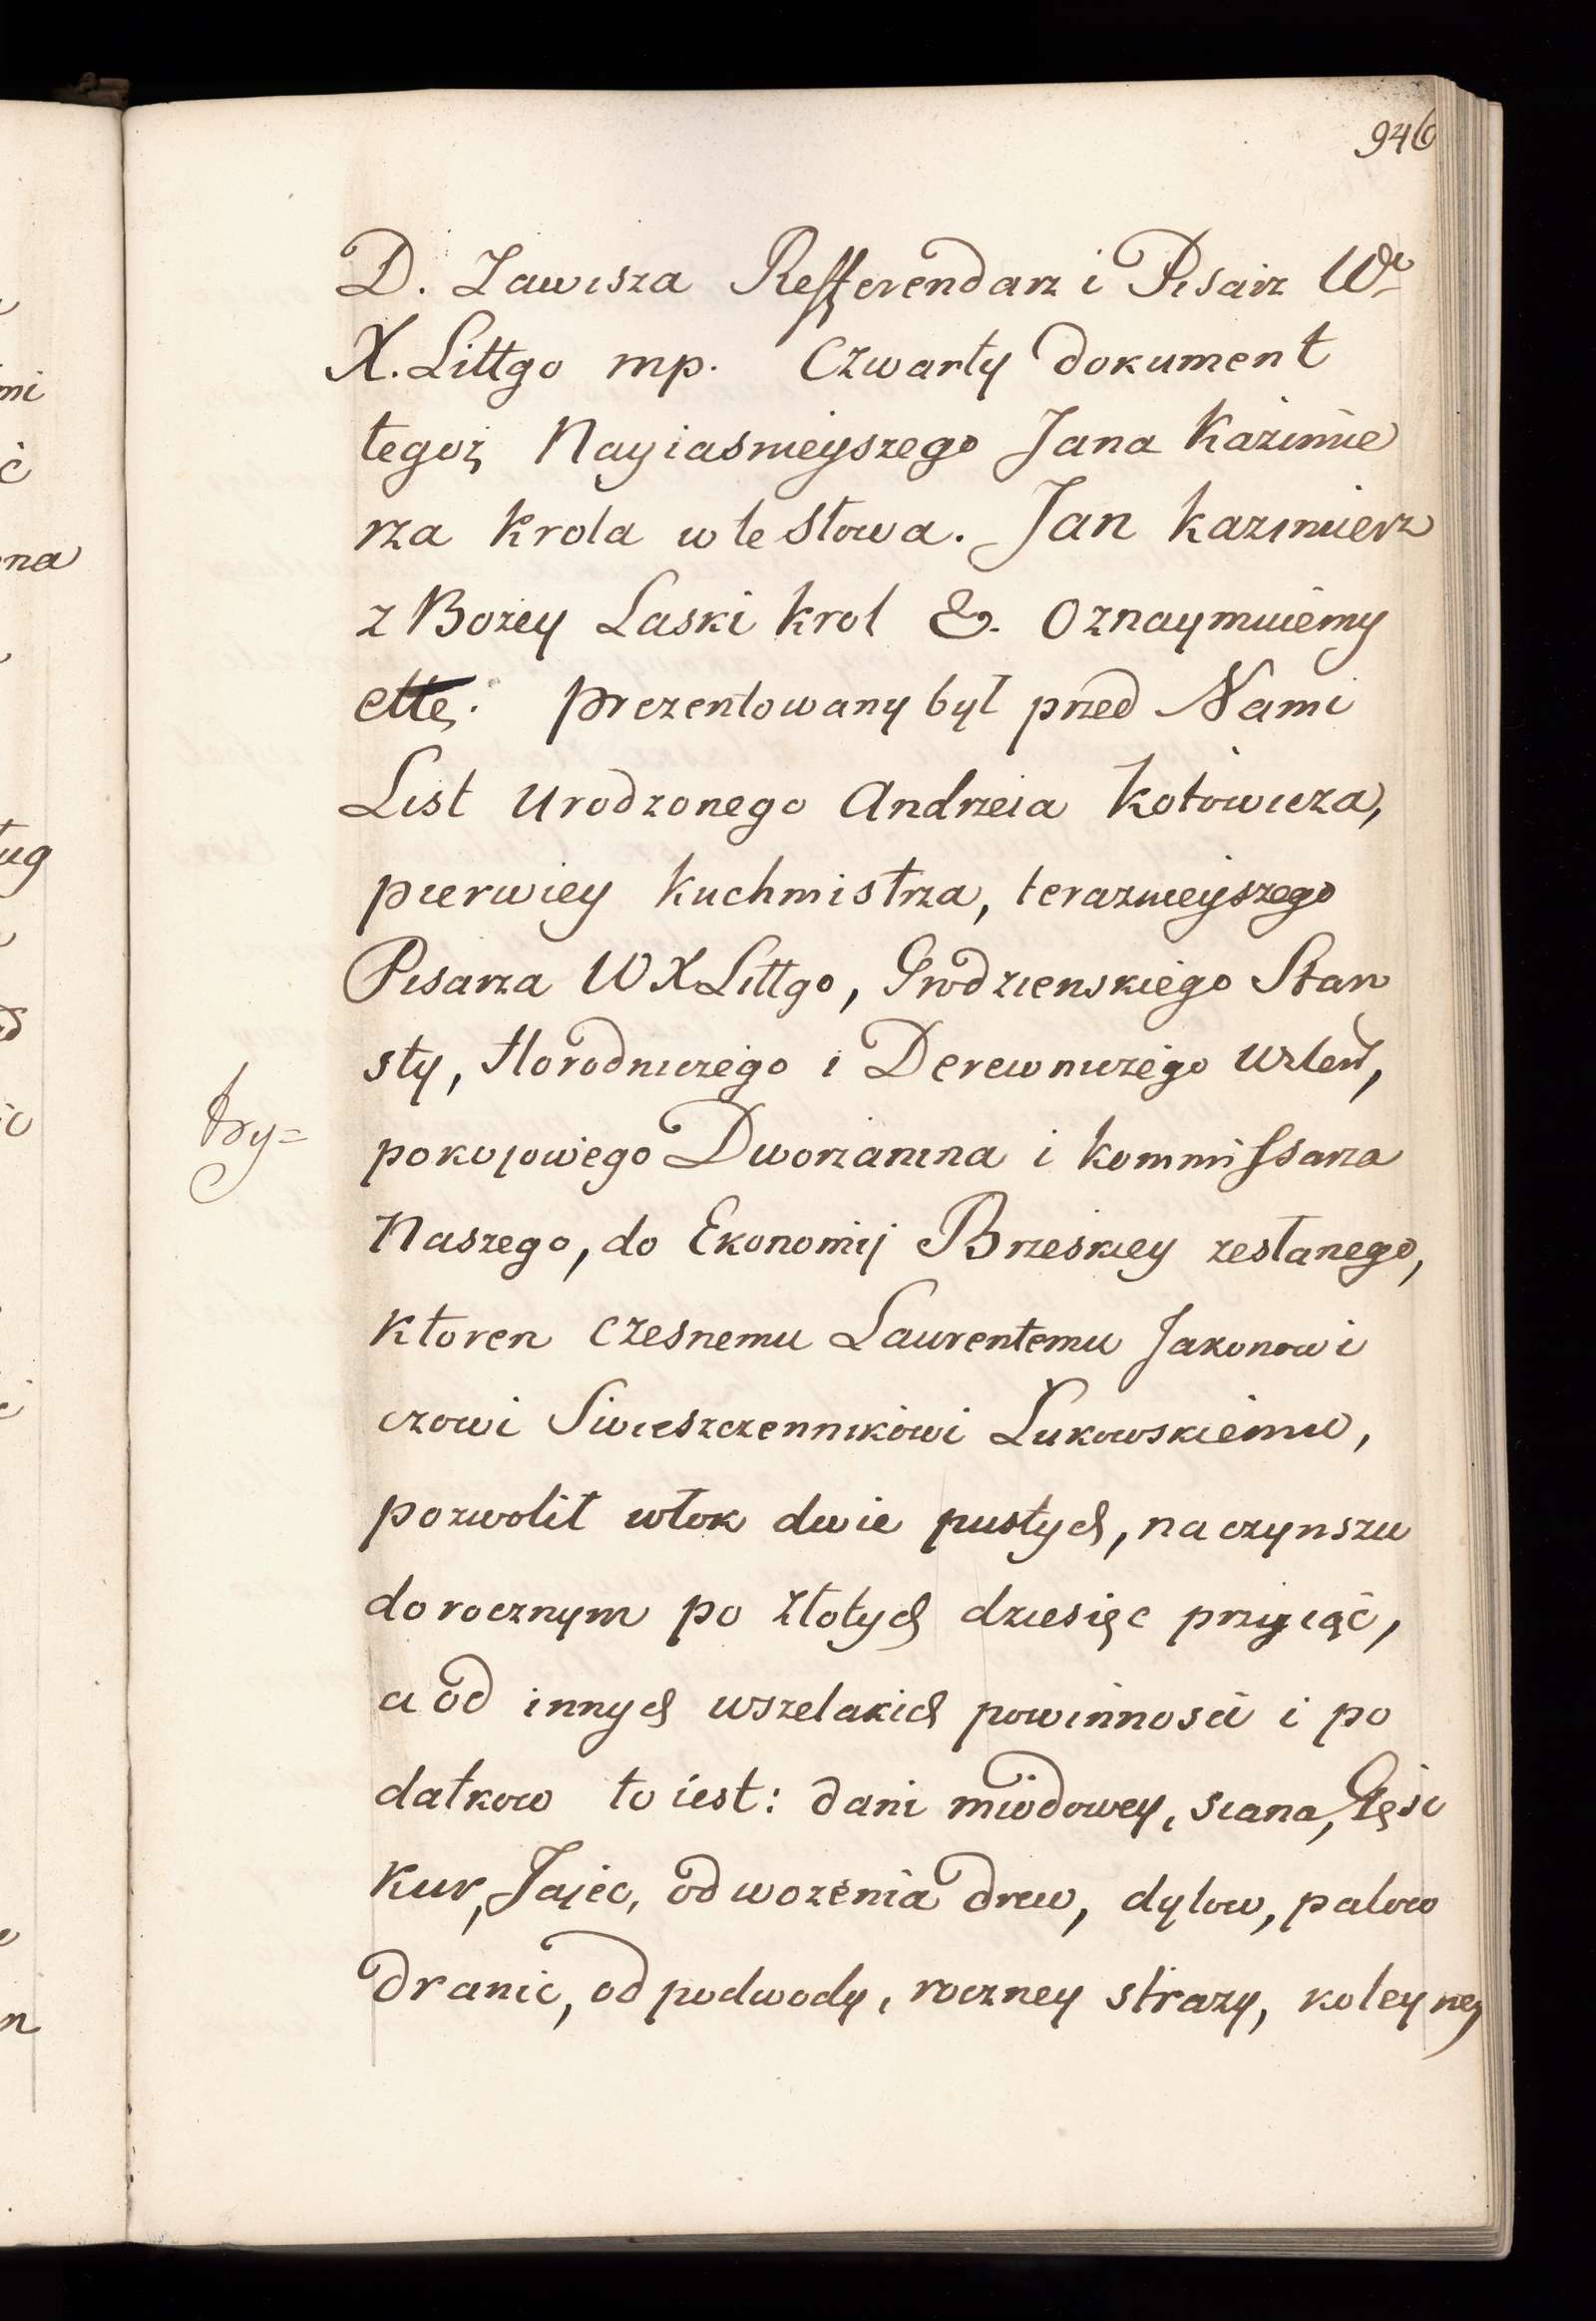 946
D. Zawisza Refferendarz i Pisarz W.
X. Littgo mp. Czwarty dokument
tegoż Nayiasnieyszego Jana Kazimie
rza Krola w te słowa. Jan Kazimierz
z Bozey Laski Krol &. Oznaymuiemy
ette. prezentowany był przed Nami
List Urodzonego Andrzeia Kotowicza,
pierwiey Kuchmistrza, teraznieyszego
Pisarza W X Littgo, Grodzienskiego Staro
sty, Horodniczego i Derewniczego
pokojowego Dworzanina i Kommissarza
Naszego, do Ekonomij Brzeskiey zesłanego,
ktoren czesnemu Laurentemu Jakonowi
czowi Swieszczennikowi Łukowskiemu,
pozwolił włok dwie pustych, na czynszu
dorocznym po Złotych dziesięc przyiąć,
a od innych wszelakich powinności i po
datkow to iest: dani miodowey, siana, Gęsi
Kur, Jajec, od wożenia drew, dylow, palow
dranic, od podwody, roczney strazy, koleyney
try=